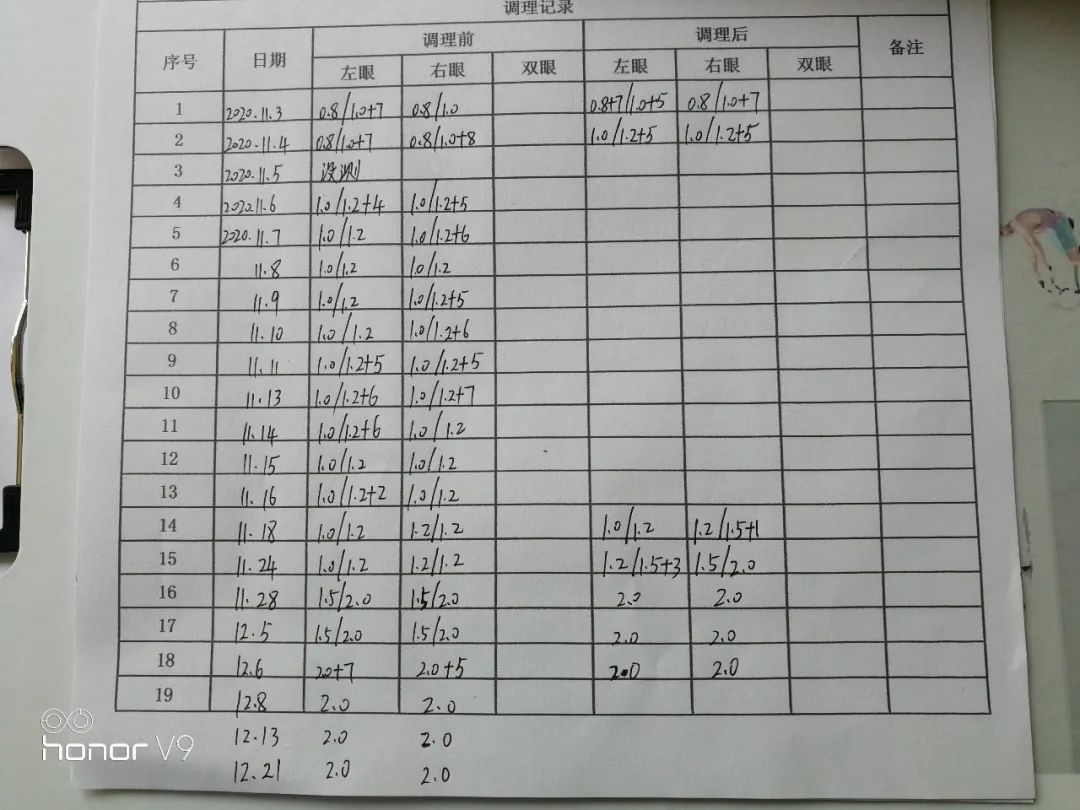 调理记录
序号 日期 调理前 调理后 备注
左眼 右眼 双眼 左眼 右眼 双眼
1 2020.11.3 0.8/1.0+7 0.8/1.0 0.8+7/1.0+5 0.8/1.0+7
2 2020.11.4 0.8/1.0+7 0.8/1.0+8 1.0/1.2+5 1.0/1.2+5
3 2020.11.5 没测
4 2020.11.6 1.0/1.2+4 1.0/1.2+5
5 2020.11.7 1.0/1.2 1.0/1.2+6
6 11.8 1.0/1.2 1.0/1.2
7 11.9 1.0/1.2 1.0/1.2+5
8 11.10 1.0/1.2 1.0/1.2+6
9 11.11 1.0/1.2+5 1.0/1.2+5
10 11.13 1.0/1.2+6 1.0/1.2+7
11 11.14 1.0/1.2+6 1.0/1.2
12 11.15 1.0/1.2 1.0/1.2
13 11.16 1.0/1.2+2 1.0/1.2
14 11.18 1.0/1.2 1.2/1.2 1.0/1.2 1.2/1.5+1
15 11.24 1.0/1.2 1.2/1.2 1.2/1.5+3 1.5/2.0
16 11.28 1.5/2.0 1.5/2.0 2.0 2.0
17 12.5 1.5/2.0 1.5/2.0 2.0 2.0
18 12.6 2.0+7 2.0+5 2.0 2.0
19 12.8 2.0 2.0
12.13 2.0 2.0
12.21 2.0 2.0
honor V9